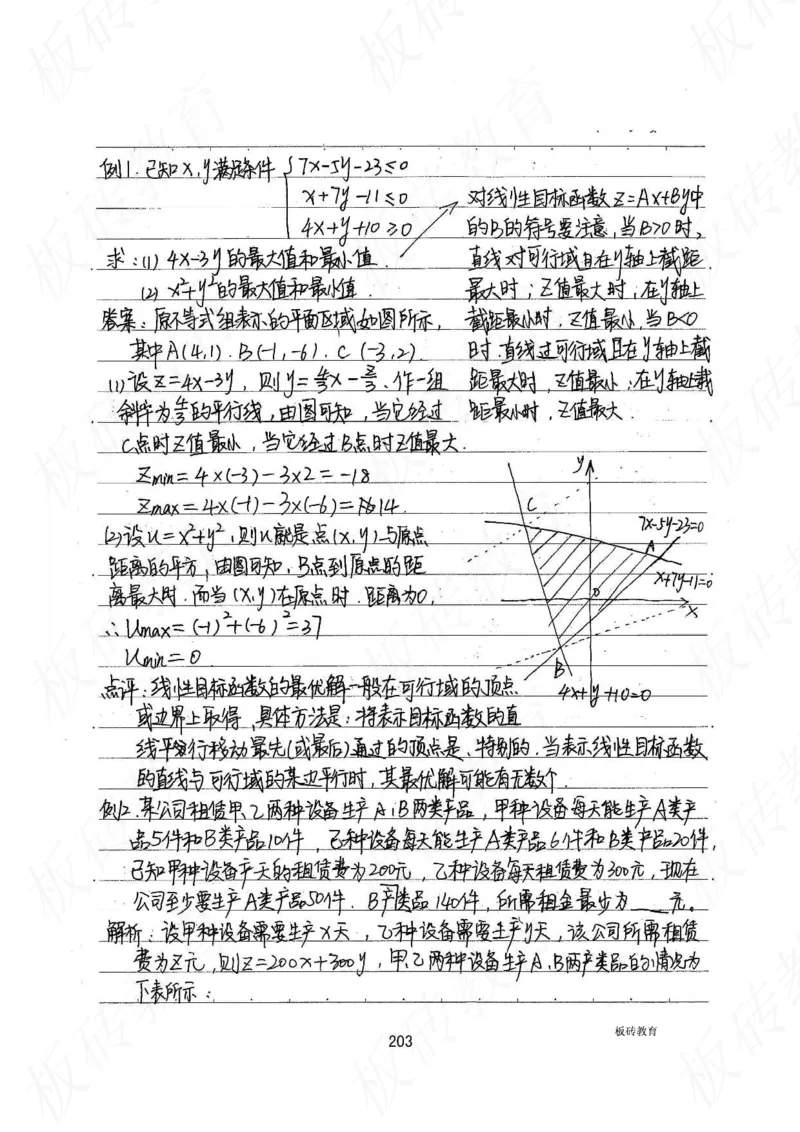 例1. 已知x,y满足条件 { 7x-5y-23≤0
x+7y-11≤0
4x+y+10≥0
求:(1) 4x-3y的最大值和最小值.
(2) x²+y²的最大值和最小值.
答案:原不等式组表示的平面区域如图所示,
其中A(4,1). B(-1,-6). C(-3,2).
(1)设z=4x-3y, 则y=4/3x-z/3. 作一组
斜率为4/3的平行线,由图可知,当它经过
C点时z值最小,当它经过B点时z值最大.
Zmin=4×(-3)-3×2=-18
Zmax=4×(-1)-3×(-6)=14.
(2)设u=x²+y²,则u就是点(x,y)与原点
距离的平方,由图可知,B点到原点的距
离最大时.而当(x,y)在原点时.距离为0,
∴Umax=(-1)²+(-6)²=37
Umin=0.
对线性目标函数z=Ax+By中
的B的符号要注意,当B>0时,
直线对可行域且在y轴上截距
最大时;z值最大时,在y轴上
截距最小时,z值最小,当B<0
时.直线过可行域且在y轴上截
距最大时,z值最小;在y轴上截
距最小时,z值最大.
y
C
7x-5y-23=0
A
x+7y-11=0
0
x
B
4x+y+10=0
点评:线性目标函数的最优解一般在可行域的顶点
或边界上取得,具体方法是:将表示目标函数的直
线平行移动最先(或最后)通过的顶点是、特别的.当表示线性目标函数
的直线与可行域的某边平行时,其最优解可能有无数个.
例2.某公司租赁甲、乙两种设备生产A,B两类产品,甲种设备每天能生产A类产
品5件和B类产品10件,乙种设备每天能生产A类产品6件和B类产品20件,
已知甲种设备每天的租赁费为200元,乙种设备每天租赁费为300元,现在
公司至少要生产A类产品50件.B产类品140件,所需租金最少为___元.
解析:设甲种设备需要生产x天,乙种设备需要生产y天,该公司所需租赁
费为z元,则z=200x+300y,甲、乙两种设备生产A、B两产类品的情况为
下表所示:
203
板砖教育